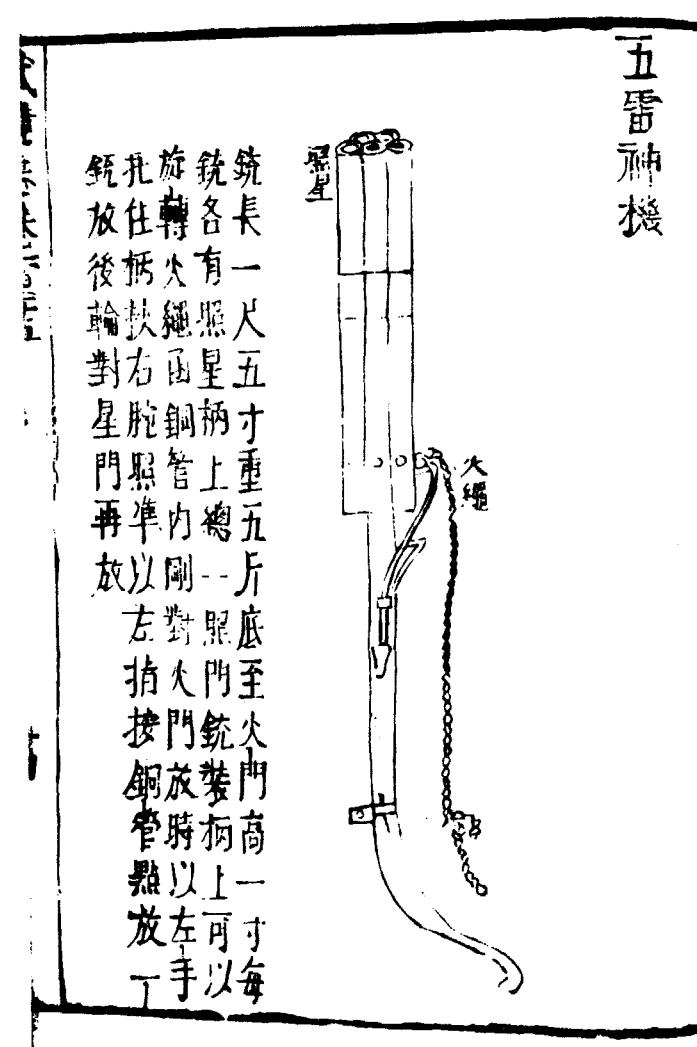 五雷神機
照星
火繩
銃長一尺五寸重五斤底至火門高一寸每
銃各有照星柄上總一照門銃裝柄上可以
旋轉火繩函銅管內剛對火門放時以左手
托住柄挾右腕照準以左指按銅管點放一
銃放後輪對星門再放
武備志卷